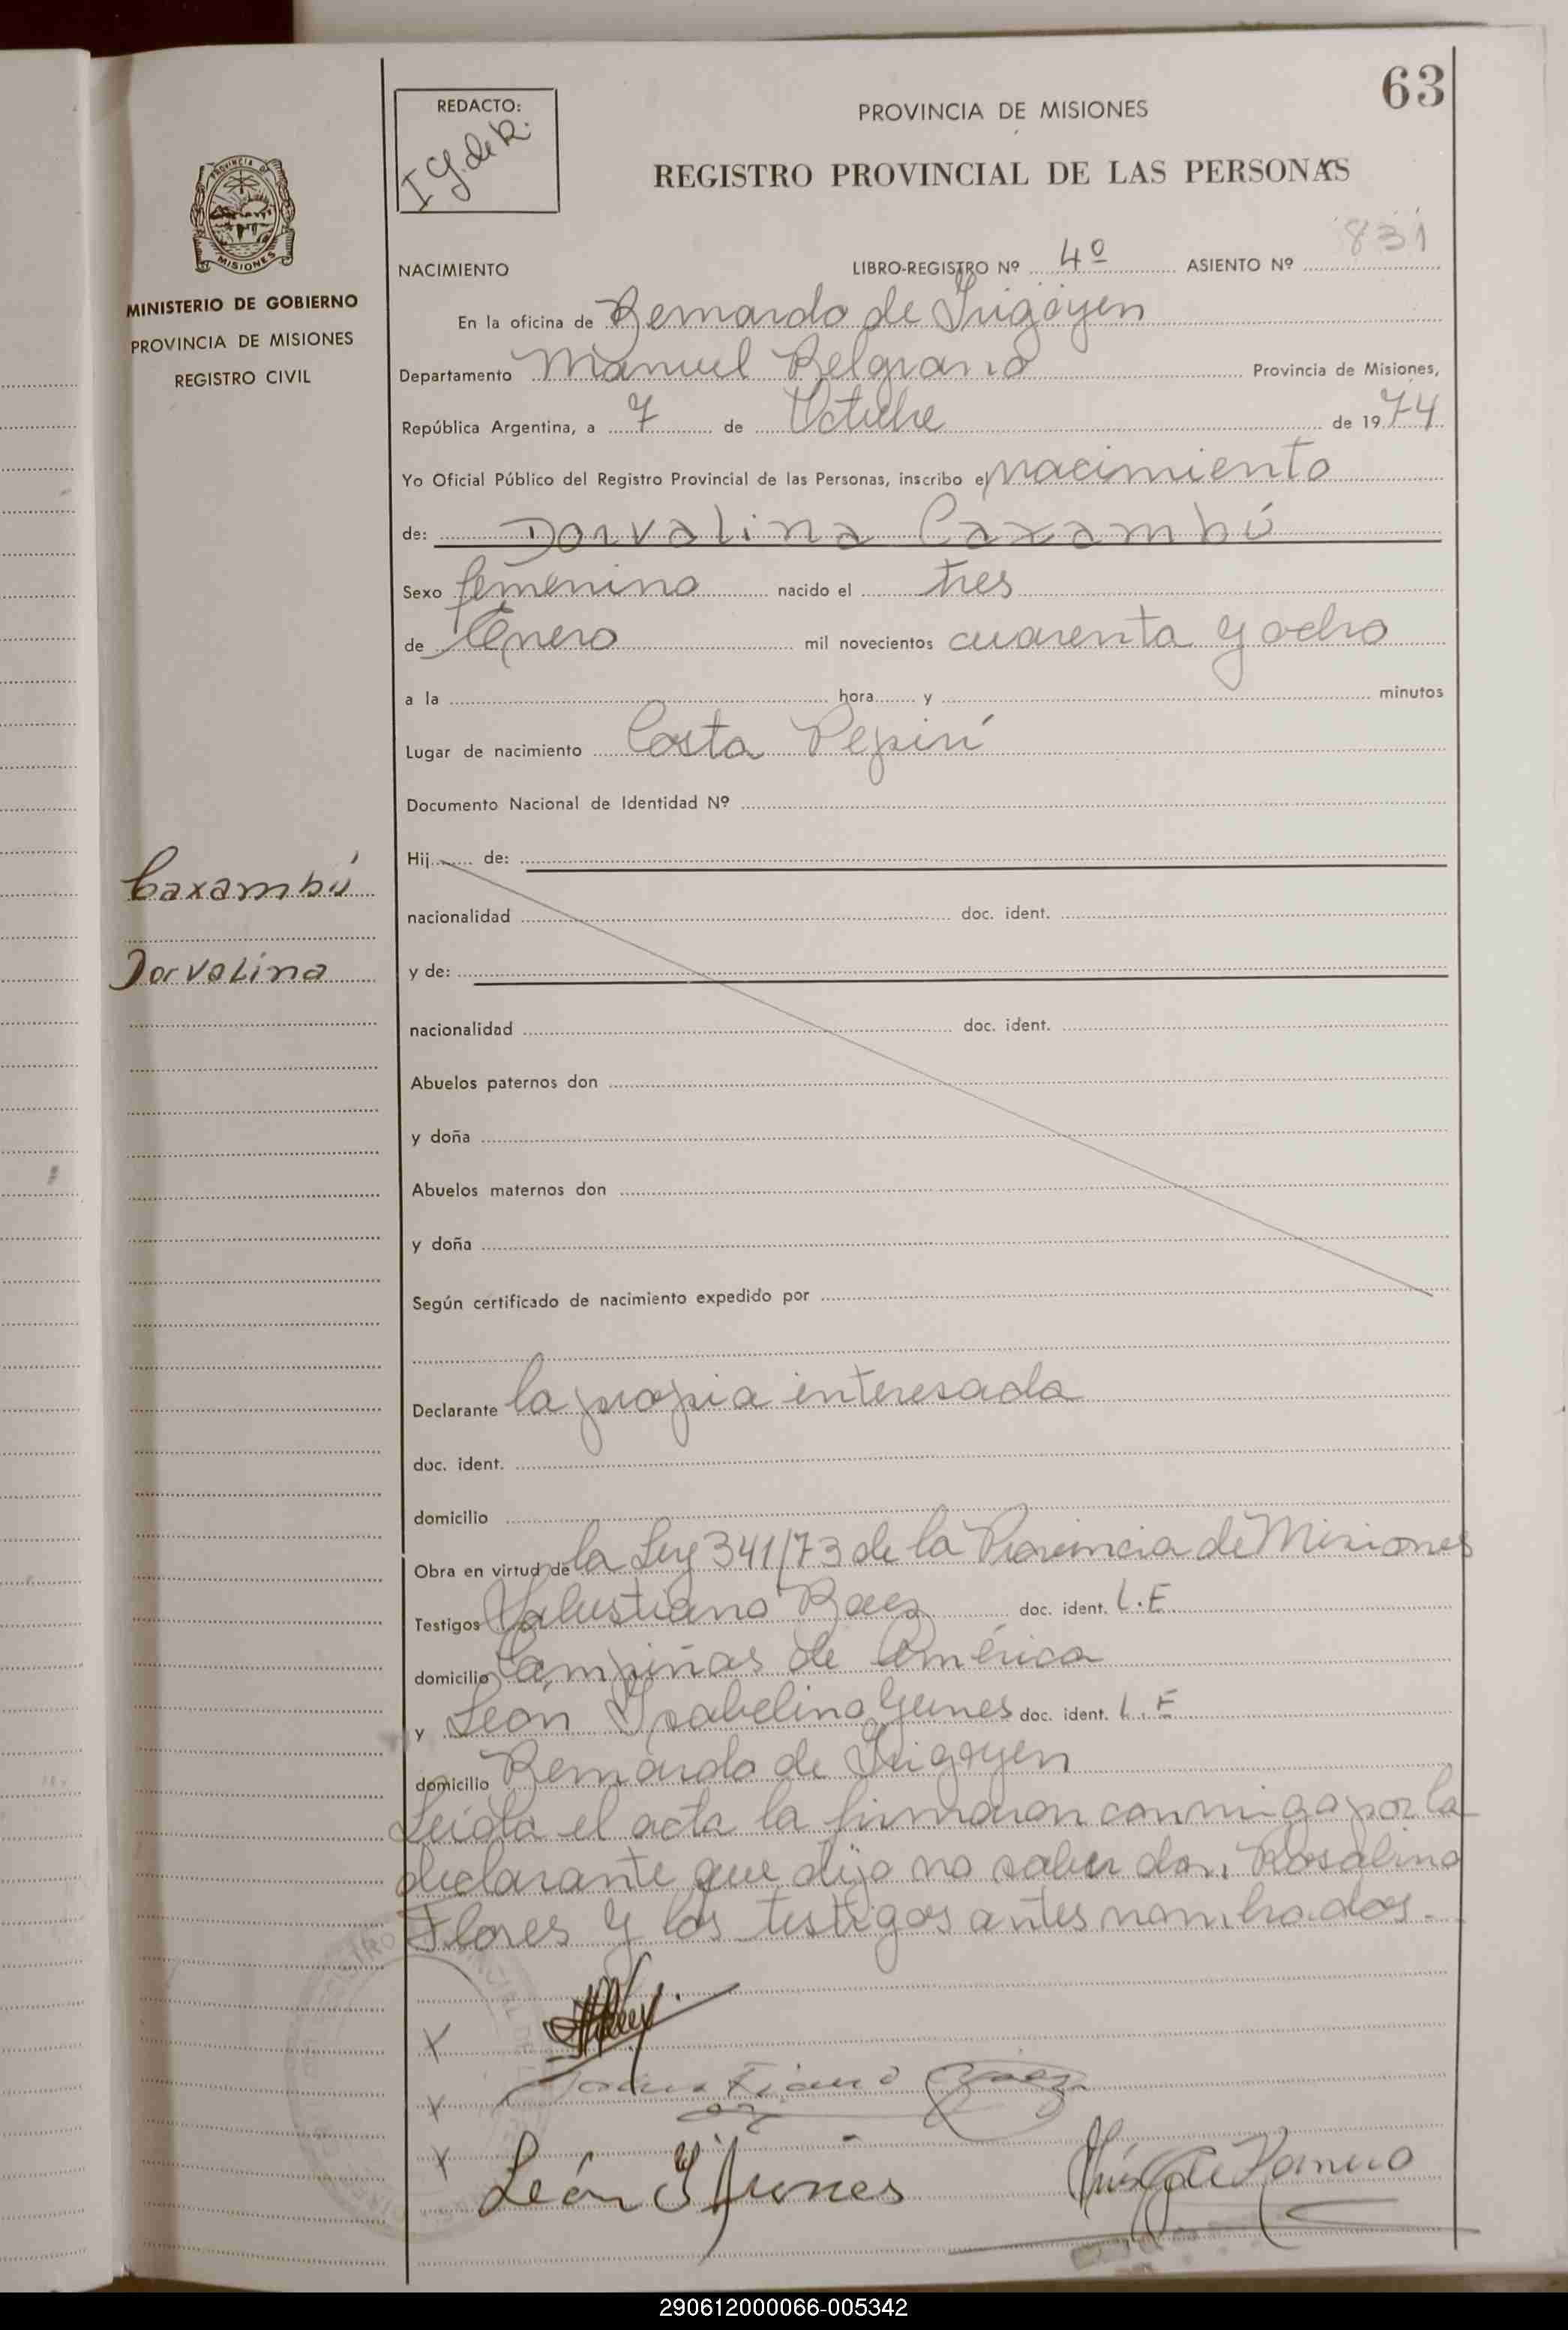 63
REDACTO:
I G. de R.
PROVINCIA DE MISIONES
REGISTRO PROVINCIAL DE LAS PERSONAS
PROVINCIA DE
MISIONES
MINISTERIO DE GOBIERNO
PROVINCIA DE MISIONES
REGISTRO CIVIL
NACIMIENTO LIBRO-REGISTRO Nº 4º ASIENTO Nº 831
En la oficina de Bernardo de Irigoyen
Departamento Manuel Belgrano Provincia de Misiones,
República Argentina, a 7 de Octubre de 1974
Yo Oficial Público del Registro Provincial de las Personas, inscribo el nacimiento
de: Dorvalina Caxambú
Sexo femenino nacido el tres
de Enero mil novecientos cuarenta y ocho
a la hora y minutos
Lugar de nacimiento Costa Pepirí
Documento Nacional de Identidad Nº
Caxambú
Dorvalina
Hij de:
nacionalidad doc. ident.
y de:
nacionalidad doc. ident.
Abuelos paternos don
y doña
Abuelos maternos don
y doña
Según certificado de nacimiento expedido por
Declarante la propia interesada
doc. ident.
domicilio
Obra en virtud de la Ley 341/73 de la Provincia de Misiones
Testigos Salustiano Baez doc. ident. L.E
domicilio Campiñas de América
y León Ysabelino Yunes doc. ident. L.E
domicilio Bernardo de Irigoyen
Leída el acta la firmaron conmigo por la
declarante que dijo no saber don Rosalino
Flores y los testigos antes nombrados.-
X
X
X León Y
290612000066-005342